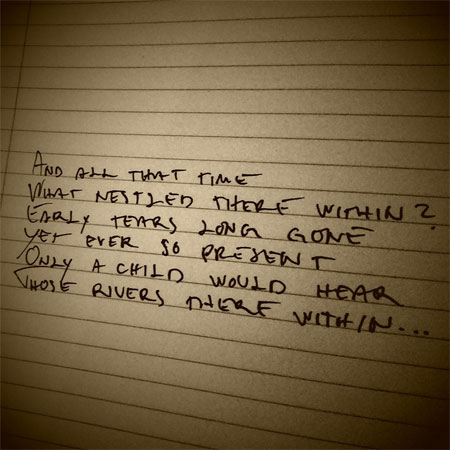 And all that time
What nestled there within?
Early tears long gone
Yet ever so present
Only a child would hear
Those rivers there within...